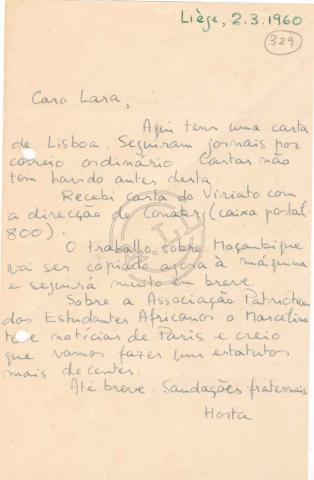 Liège, 2.3.1960
329
Caro Lara,
Aqui tens uma carta
de Lisboa. Seguiram jornais por
correio ordinário. Cartas não
tem havido antes desta.
Recebi carta do Viriato com
a direcção de Conakry (caixa postal
800).
O trabalho sobre Moçambique
vai ser copiado agora à máquina
e seguirá muito em breve.
Sobre a Associação Patriótica
dos Estudantes Africanos o Marcelino
teve notícias de Paris e creio
que vamos fazer uns estatutos
mais decentes.
Até breve. Saudações fraternais
Horta